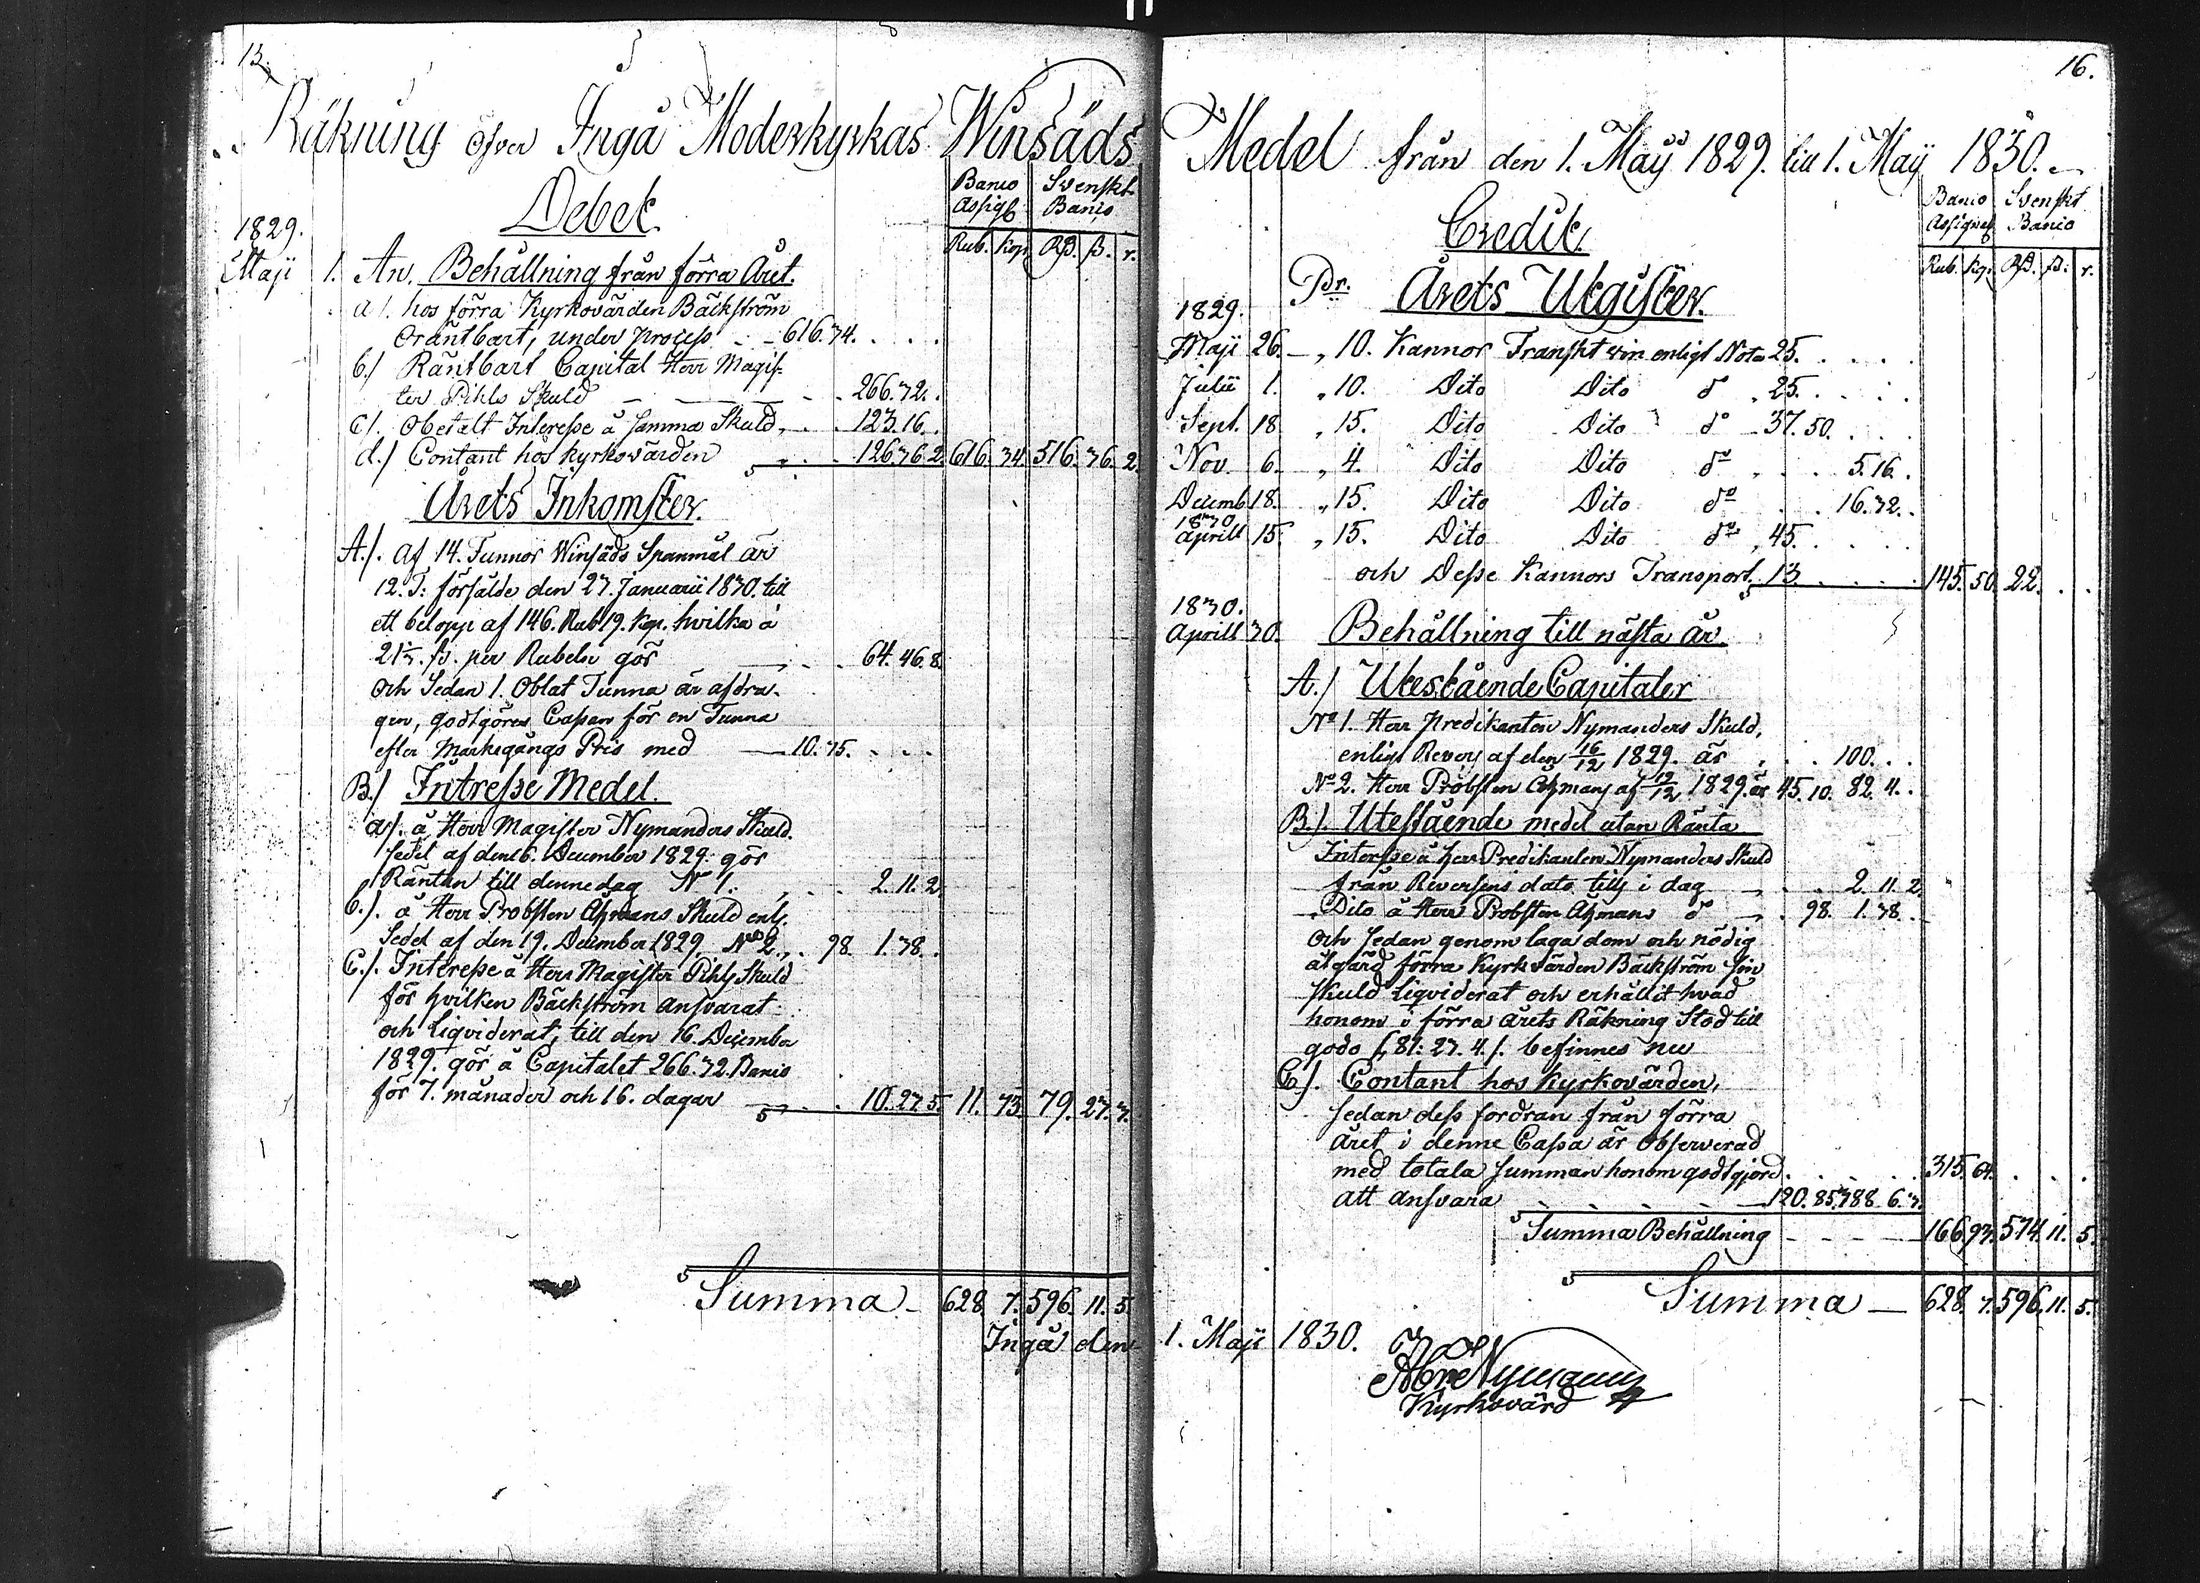 13.
Räkning öfver Ingå Moderkyrkas Winsäds
Debet.
Banco Assigt Svenskt Banco
Rub. Kop. Rß. ß. r.
1829.
Maji 1. An. Behållning från förra Året.
a/. hos förra Kyrkovärden Bäckström
Oräntbart, under process - - 616.34.
b./ Räntbart Capital Herr Magis-
ter Pihls Skuld - - - 266.32.
c/. Obetalt Interesse å samma Skuld - 123.16.
d./ Contant hos kyrkovärden 126.36.2 616. 34. 516. 36. 2.
Årets Inkomster.
A./. af 14. Tunnor Winsäds Spanmål är
12. T: försålde den 27. Januarii 1830. till
ett belopp af 146. Rub 19. Kop. hvilka à
21⅓. ß. per Rubeln gör 64. 46. 8.
och sedan 1. Oblat Tunna är afdra-
gen, godtgöres Cassan för en Tunna
efter Markegångs Pris med 10.75.
B./ Intresse Medel.
a/. å Herr Magister Nymanders Skuld.
sedel af den 16. December 1829. gör
Räntan till denne dag No 1. 2. 11. 2.
b./. å Herr Probsten Åhmans Skuld enl.
Sedel af den 19. December 1829. No 2. 98. 1.38.
C./. Interesse å Herr Magister Pihls Skuld
för hvilken Bäckström ansvarat
och Liqviderat, till den 16. December
1829. gör å Capitalet 266.32. Banco
för 7. månader och 16. dagar 10.27.5. 11. 73. 79. 27. 7.
Summa - 628. 7. 596. 11. 5.
Ingå den
16.
Medel från den 1. Maij 1829. till 1. Maij 1830.
Credit.
Banco Assignat Svenskt Banco
Rub. Kop. Rß. ß. r.
Pr. Årets Utgifter.
1829.
Maji 26. „ 10. Kannor Franskt vin enligt Nota 25.
Julii 1. „ 10. Dito Dito do 25.
Sept. 18 „ 15. Dito Dito do 37. 50.
Nov. 6. „ 4. Dito Dito do 5.16.
Decemb 18. „ 15. Dito Dito do 16.32.
1830
Aprill 15. „ 15. Dito Dito do 45.
och Desse Kannors Transport 13. 145. 50. 22.
1830.
Aprill 30. Behållning till nästa år.
A./ Utestående Capitaler
No 1. Herr Predikanten Nymanders Skuld,
enligt Revers af den 16/12 1829. är 100.
No 2. Herr Probsten Åhmans af 19/12 1829. är 45. 10. 82. 4.
B./. Utestående medel utan Ränta
Interesse å Herr Predikanten Nymanders Skuld
från Reversens dato tills i dag 2. 11. 2.
Dito å Herr Probsten Åhmans do 98. 1.38.
och sedan genom laga dom och nödig
åtgärd förra Kyrkvärden Bäckström sin
skuld Liqviderat och erhållit hvad
honom i förra årets Räkning Stod till
godo 81: 27. 4./. befinnes nu
C./. Contant hos Kyrkovärden,
sedan dess fordran från förra
året i denne Cassa är observerad
med totala summan honom godtgjord 315. 64.
att ansvara 120.85. 388. 6.3.
Summa Behållning - - - 166. 93. 574. 11. 5.
Summa - 628. 7. 596. 11. 5.
1. Maji 1830.
Kyrkovärd